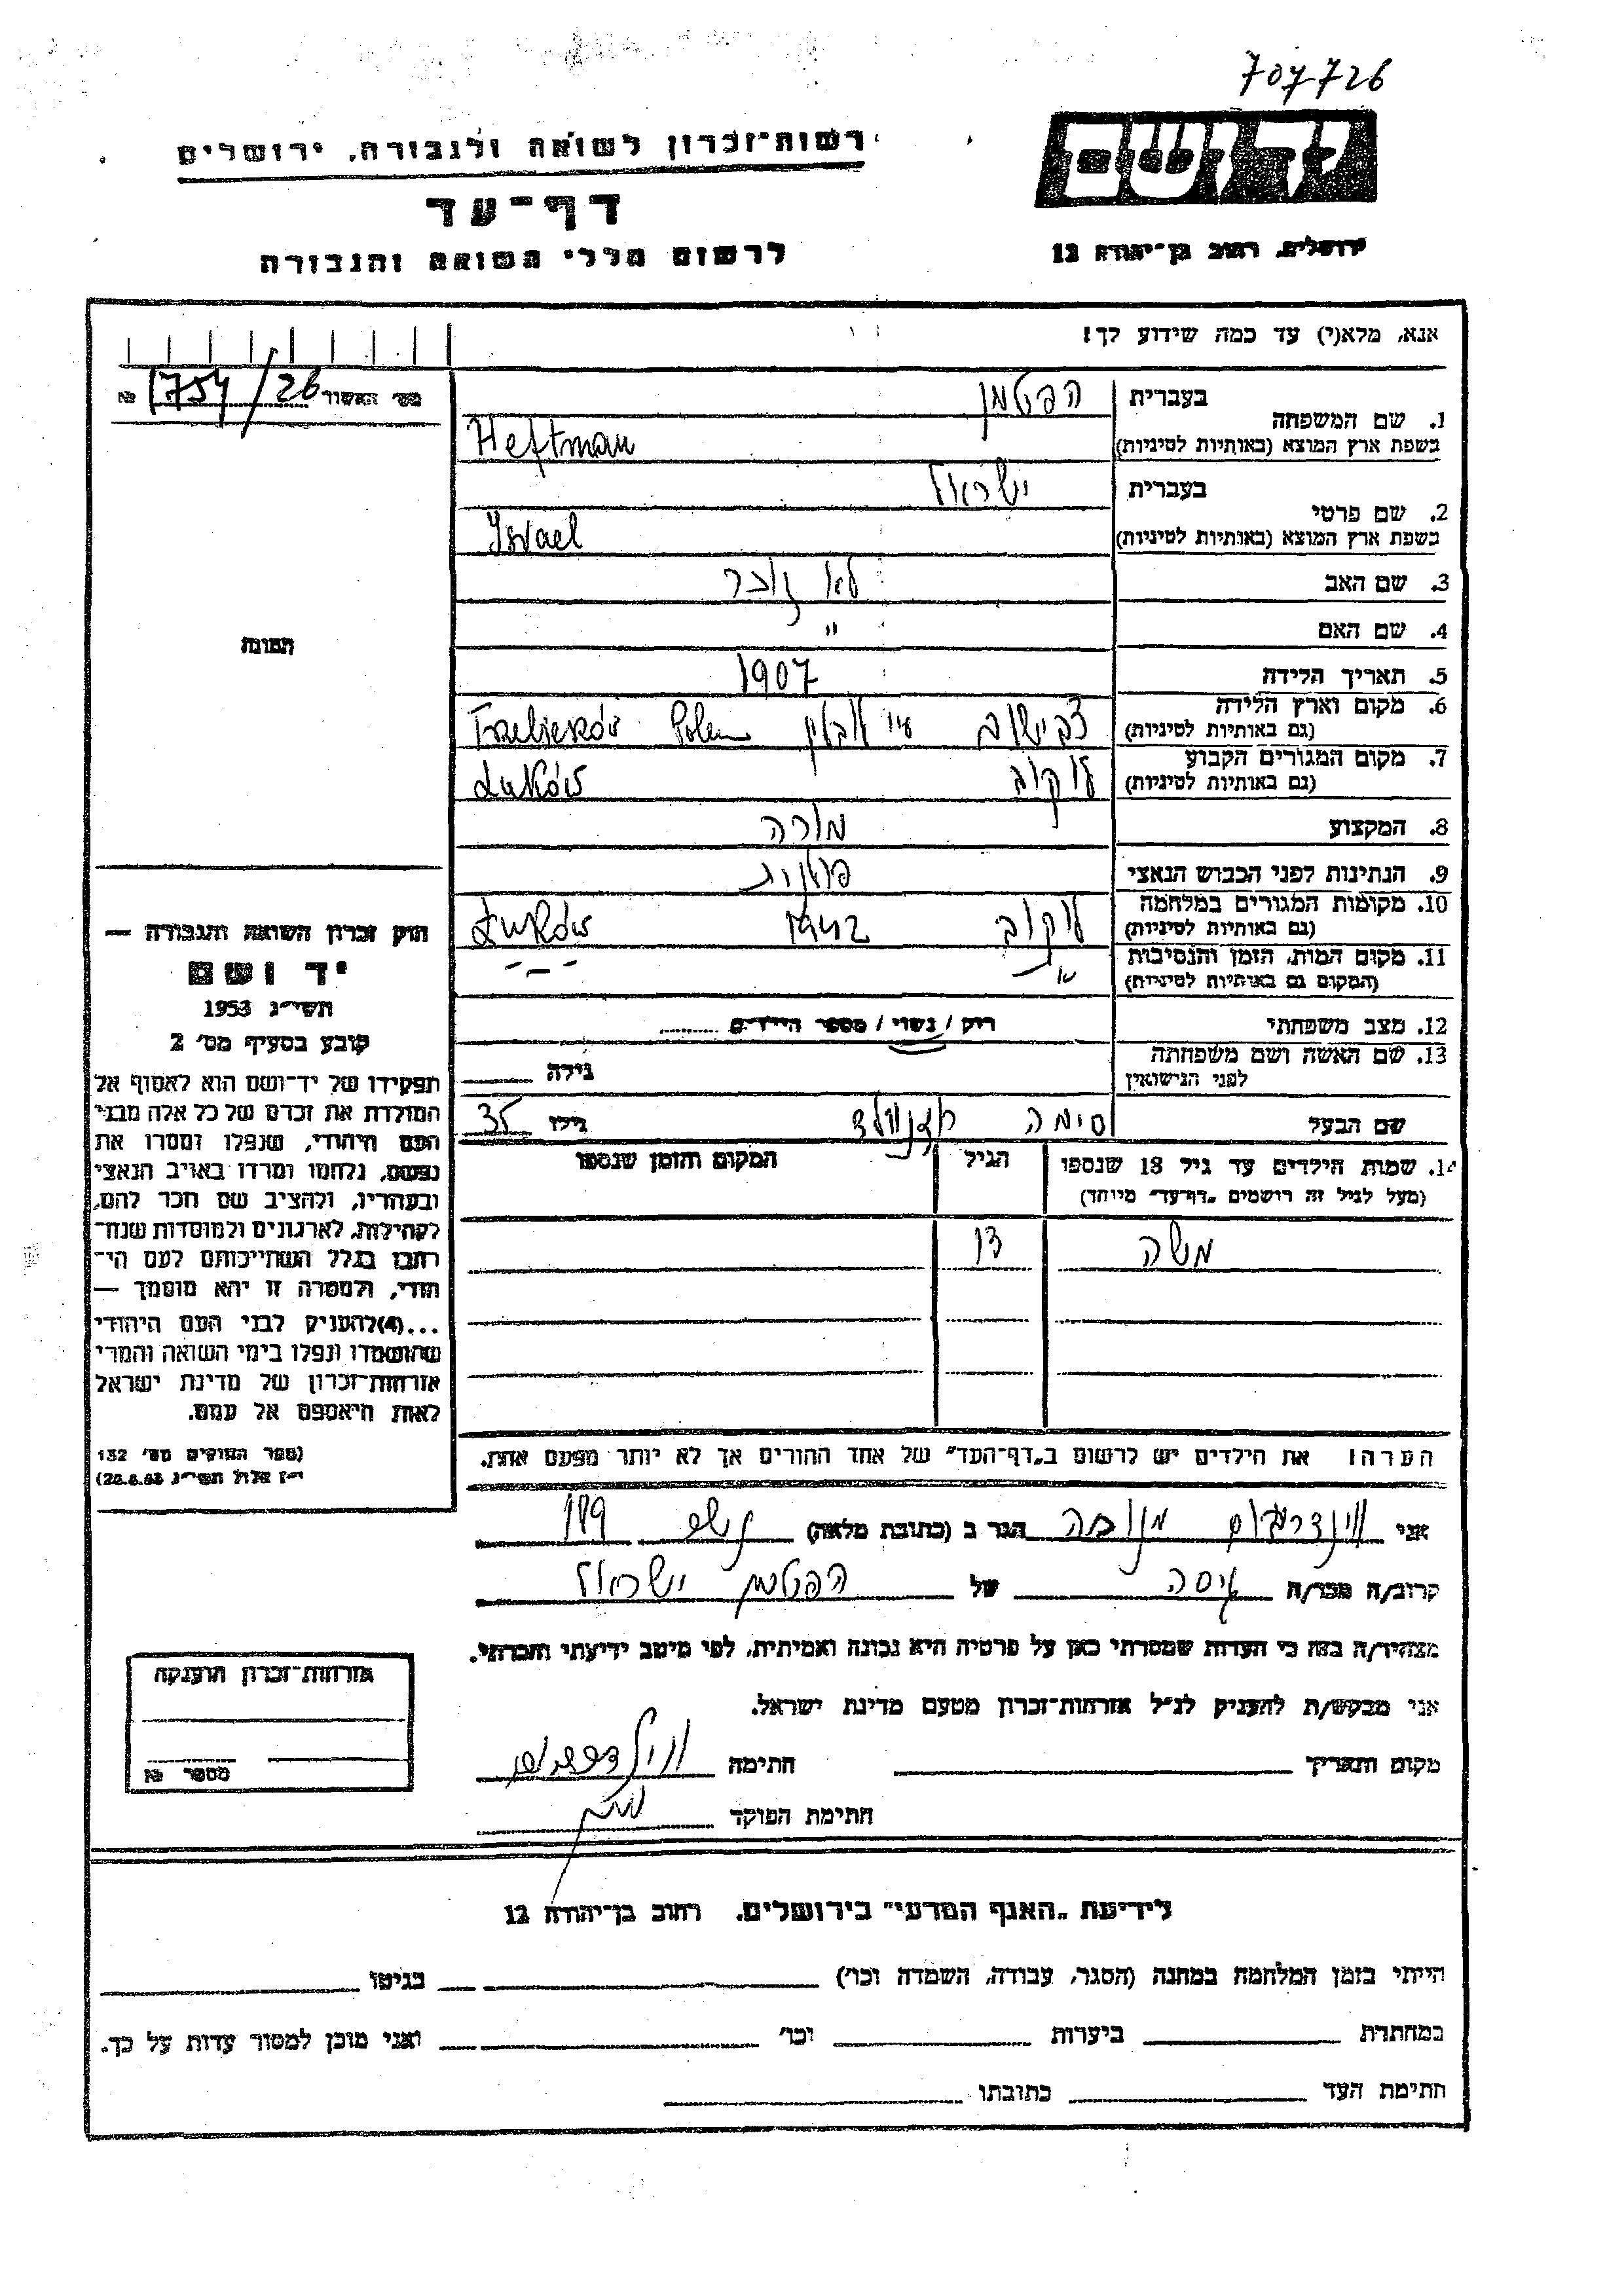 707726
רשות־זכרון לשואה ולגבורה, ירושלים
יד ושם
דף־עד
ירושלים, רחוב בן־יהודה 12
לרשום חללי השואה והגבורה
אנא, מלא(י) עד כמה שידוע לך!
מס' האשור 1754/26 №
1. שם המשפחה
בעברית הפטמן
בשפת ארץ המוצא (באותיות לטיניות) Heftman
2. שם פרטי
בעברית ישראל
בשפת ארץ המוצא (באותיות לטיניות) Israel
3. שם האב לא זוכר
4. שם האם "
5. תאריך הלידה 1907
6. מקום וארץ הלידה
(גם באותיות לטיניות) Polen
7. מקום המגורים הקבוע לוקוב
(גם באותיות לטיניות) Łuków
8. המקצוע מורה
9. הנתינות לפני הכבוש הנאצי פולנית
10. מקומות המגורים במלחמה לוקוב 1942
(גם באותיות לטיניות) Łuków
11. מקום המות, הזמן והנסיבות
(המקום גם באותיות לטיניות)
12. מצב משפחתי רוק / נשוי / מספר הילדים
13. שם האשה ושם משפחתה
לפני הנישואין גילה
שם הבעל סימה גילו 35
14. שמות הילדים עד גיל 18 שנספו הגיל המקום והזמן שנספו
(מעל לגיל זה רושמים „דף־עד" מיוחד)
משה
הערה! את הילדים יש לרשום ב„דף־העד" של אחד ההורים אך לא יותר מפעם אחת.
תמונה
חוק זכרון השואה והגבורה —
יד ושם
תשי״ג 1953
קובע בסעיף מס' 2
תפקידו של יד־ושם הוא לאסוף אל
המולדת את זכרם של כל אלה מבני
העם היהודי, שנפלו ומסרו את
נפשם, נלחמו ומרדו באויב הנאצי
ובעוזריו, ולהציב שם וזכר להם,
לקהילות, לארגונים ולמוסדות שנח־
רבו בגלל השתייכותם לעם הי־
הודי, ולמטרה זו יהא מוסמך —
...(4)להעניק לבני העם היהודי
שהושמדו ונפלו בימי השואה והמרי
אזרחות־זכרון של מדינת ישראל
לאות היאספם אל עמם.
(ספר החוקים מס' 132
י״ז אלול תשי״ג 28.8.53)
אני הגר ב (כתובת מלאה)
קרוב/ה מכר/ה גיסה של הפטמן ישראל
מצהיר/ה בזה כי העדות שמסרתי כאן על פרטיה היא נכונה ואמיתית, לפי מיטב ידיעתי והכרתי.
אני מבקש/ת להעניק לנ״ל אזרחות־זכרון מטעם מדינת ישראל.
מקום ותאריך חתימה
חתימת הפוקד
אזרחות־זכרון הוענקה
מספר №
לידיעת „האגף המדעי" בירושלים. רחוב בן־יהודה 12
הייתי בזמן המלחמה במחנה (הסגר, עבודה, השמדה וכו') בגיטו
במחתרת ביערות וכו' ואני מוכן למסור עדות על כך.
חתימת העד כתובתו